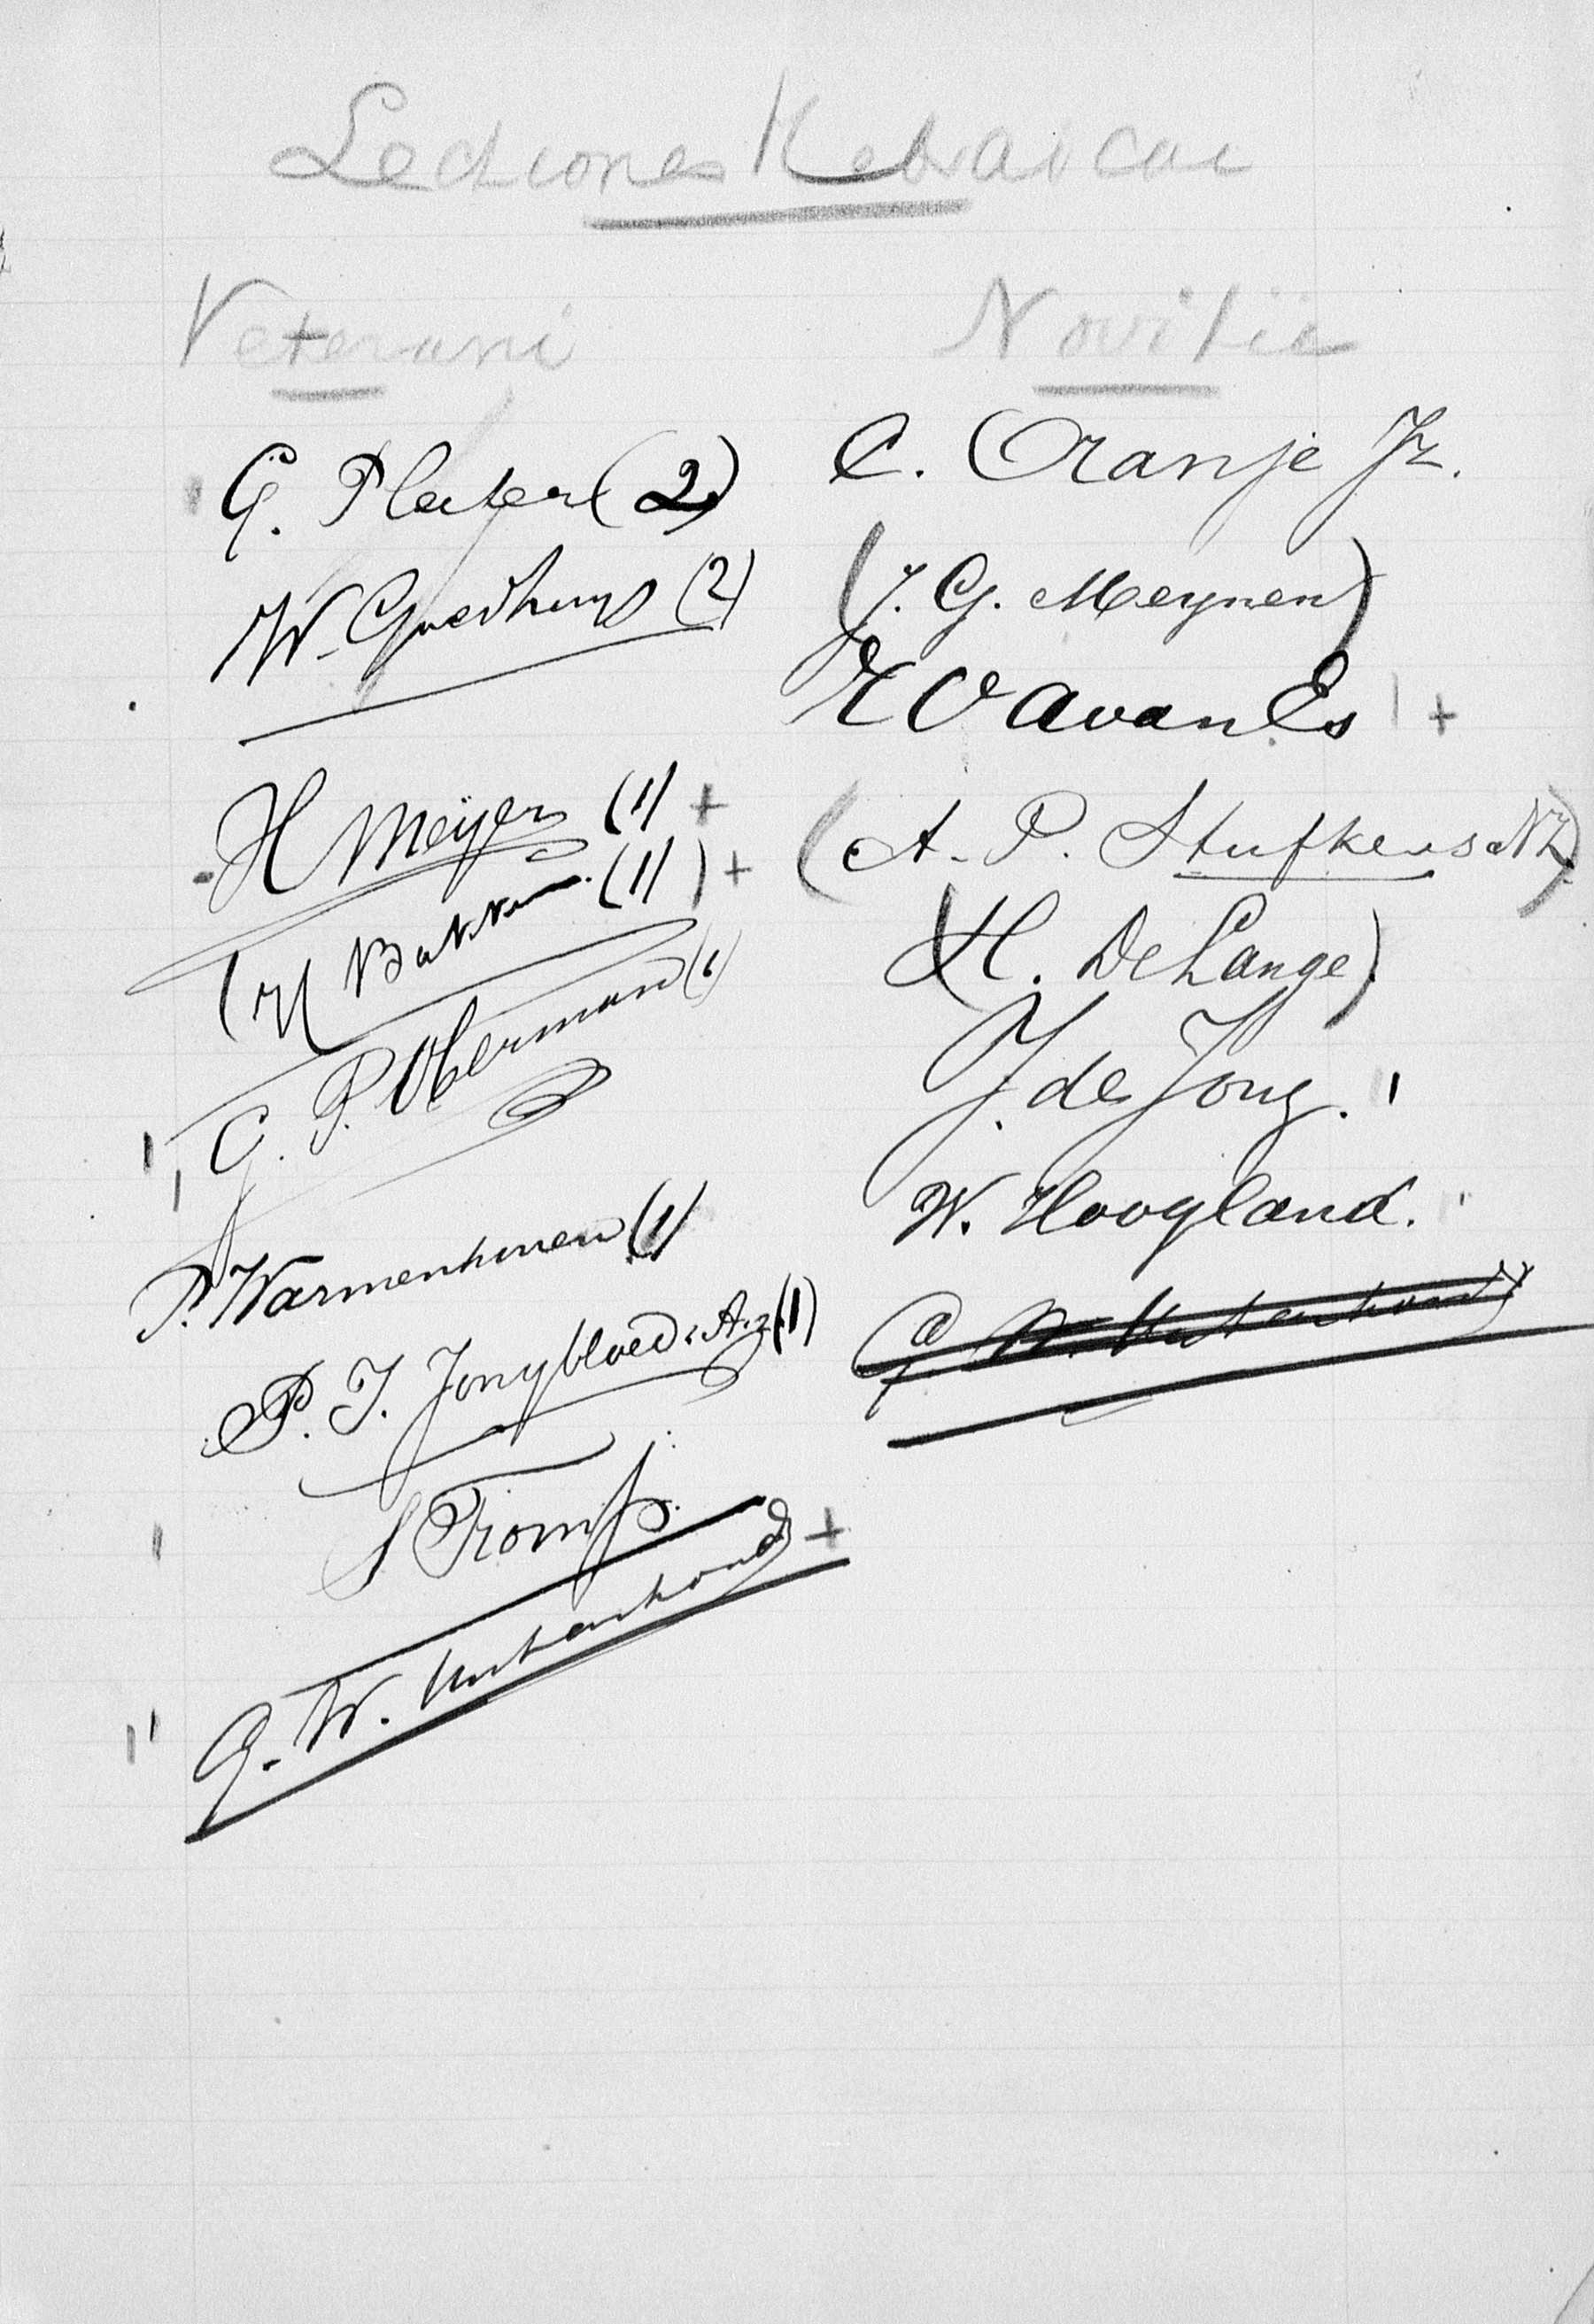 Lectiones Hebraicae
Veterani
G. Plater (2)
W. Goedhuys (2)
H Meijer (1) +
(H Bakker (1)) +
C. P. Oberman (1)
P. Warmenhoven (1)
P. J. Jongbloed. Az. (1)
S Tromp.
G. W. Uutenhoudt +
Novitii
C. Oranje Jr.
(J. G. Meynen)
van Es +
(A. P. Stufkens NZ)
(H. De Lange)
J. de Jong.
W. Hoogland.